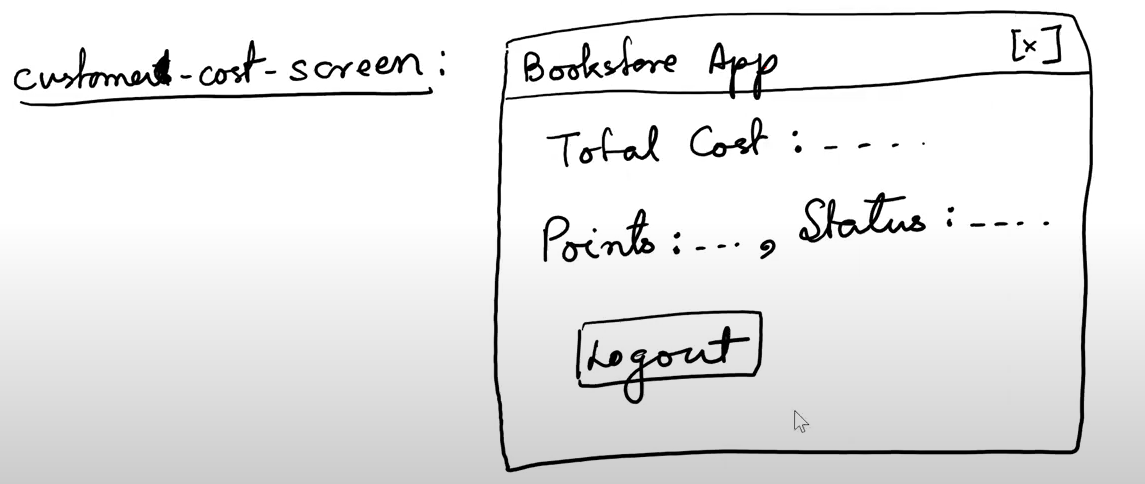 customer-cost-screen:
Bookstore App [x]
Total Cost : - - - -
Points : - - - , Status : - - - -
Logout